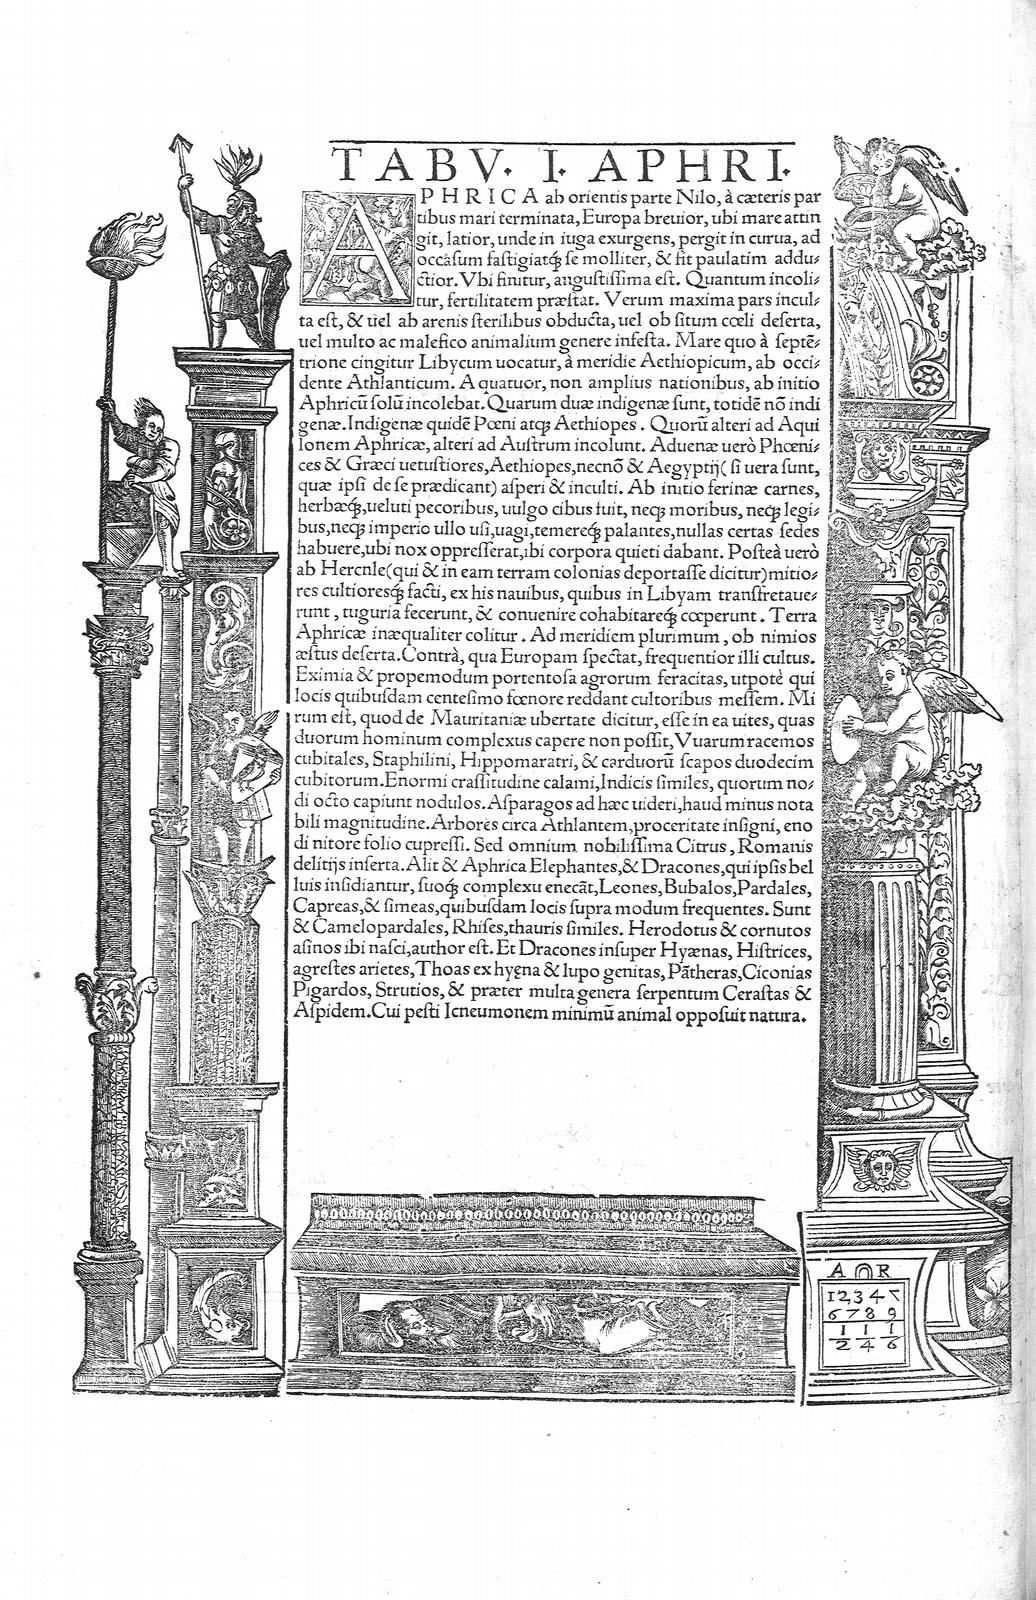 TABV. I. APHRI.
APHRICA ab orientis parte Nilo, à cæteris par
tibus mari terminata, Europa breuior, ubi mare attin
git, latior, unde in iuga exurgens, pergit in curua, ad
occaſum faſtigiatq́ꝫ ſe molliter, & fit paulatim addu⸗
ctior. Vbi finitur, anguſtiſſima eſt. Quantum incoli⸗
tur, fertilitatem præſtat. Verum maxima pars incul⸗
ta eſt, & uel ab arenis ſterilibus obducta, uel ob ſitum cœli deſerta,
uel multo ac malefico animalium genere infeſta. Mare quo à ſeptē⸗
trione cingitur Libycum uocatur, à meridie Aethiopicum, ab occi⸗
dente Athlanticum. A quatuor, non amplius nationibus, ab initio
Aphricū ſolū incolebat. Quarum duæ indigenæ ſunt, totidē nō indi
genæ. Indigenæ quidē Pœni atqꝫ Aethiopes. Quorū alteri ad Aqui
lonem Aphricæ, alteri ad Auſtrum incolunt. Aduenæ uerò Phœni⸗
ces & Græci uetuſtiores, Aethiopes, necnō & Aegyptij (ſi uera ſunt,
quæ ipſi de ſe prædicant) aſperi & inculti. Ab initio ferinæ carnes,
herbæq́ꝫ, ueluti pecoribus, uulgo cibus fuit, neqꝫ moribus, neqꝫ legi⸗
bus, neqꝫ imperio ullo uſi, uagi, temereq́ꝫ palantes, nullas certas ſedes
habuere, ubi nox oppreſſerat, ibi corpora quieti dabant. Poſteà uerò
ab Hercnle (qui & in eam terram colonias deportaſſe dicitur) mitio⸗
res cultioresq́ꝫ facti, ex his nauibus, quibus in Libyam tranſfretaue⸗
runt, tuguria fecerunt, & conuenire cohabitareq́ꝫ cœperunt. Terra
Aphricæ inæqualiter colitur. Ad meridiem plurimum, ob nimios
æſtus deſerta. Contrà, qua Europam ſpectat, frequentior illi cultus.
Eximia & propemodum portentoſa agrorum feracitas, utpotè qui
locis quibuſdam centeſimo fœnore reddant cultoribus meſſem. Mi
rum eſt, quod de Mauritaniæ ubertate dicitur, eſſe in ea uites, quas
duorum hominum complexus capere non poſſit, Vuarum racemos
cubitales, Staphilini, Hippomaratri, & carduorū ſcapos duodecim
cubitorum. Enormi craſſitudine calami, Indicis ſimiles, quorum no⸗
di octo capiunt nodulos. Aſparagos ad hæc uideri, haud minus nota
bili magnitudine. Arbores circa Athlantem, proceritate inſigni, eno
di nitore folio cupreſſi. Sed omnium nobiliſſima Citrus, Romanis
delitijs inſerta. Alit & Aphrica Elephantes, & Dracones, qui ipſis bel
luis inſidiantur, ſuoq́ꝫ complexu enecāt, Leones, Bubalos, Pardales,
Capreas, & ſimeas, quibuſdam locis ſupra modum frequentes. Sunt
& Camelopardales, Rhiſes, thauris ſimiles. Herodotus & cornutos
aſinos ibi naſci, author eſt. Et Dracones inſuper Hyænas, Hiſtrices,
agreſtes arietes, Thoas ex hyęna & lupo genitas, Pātheras, Ciconias
Pigardos, Strutios, & præter multa genera ſerpentum Ceraſtas &
Aſpidem. Cui peſti Icneumonem minimū animal oppoſuit natura.
A R
1 2 3 4 5
6 7 8 9
1 1 1
2 4 6